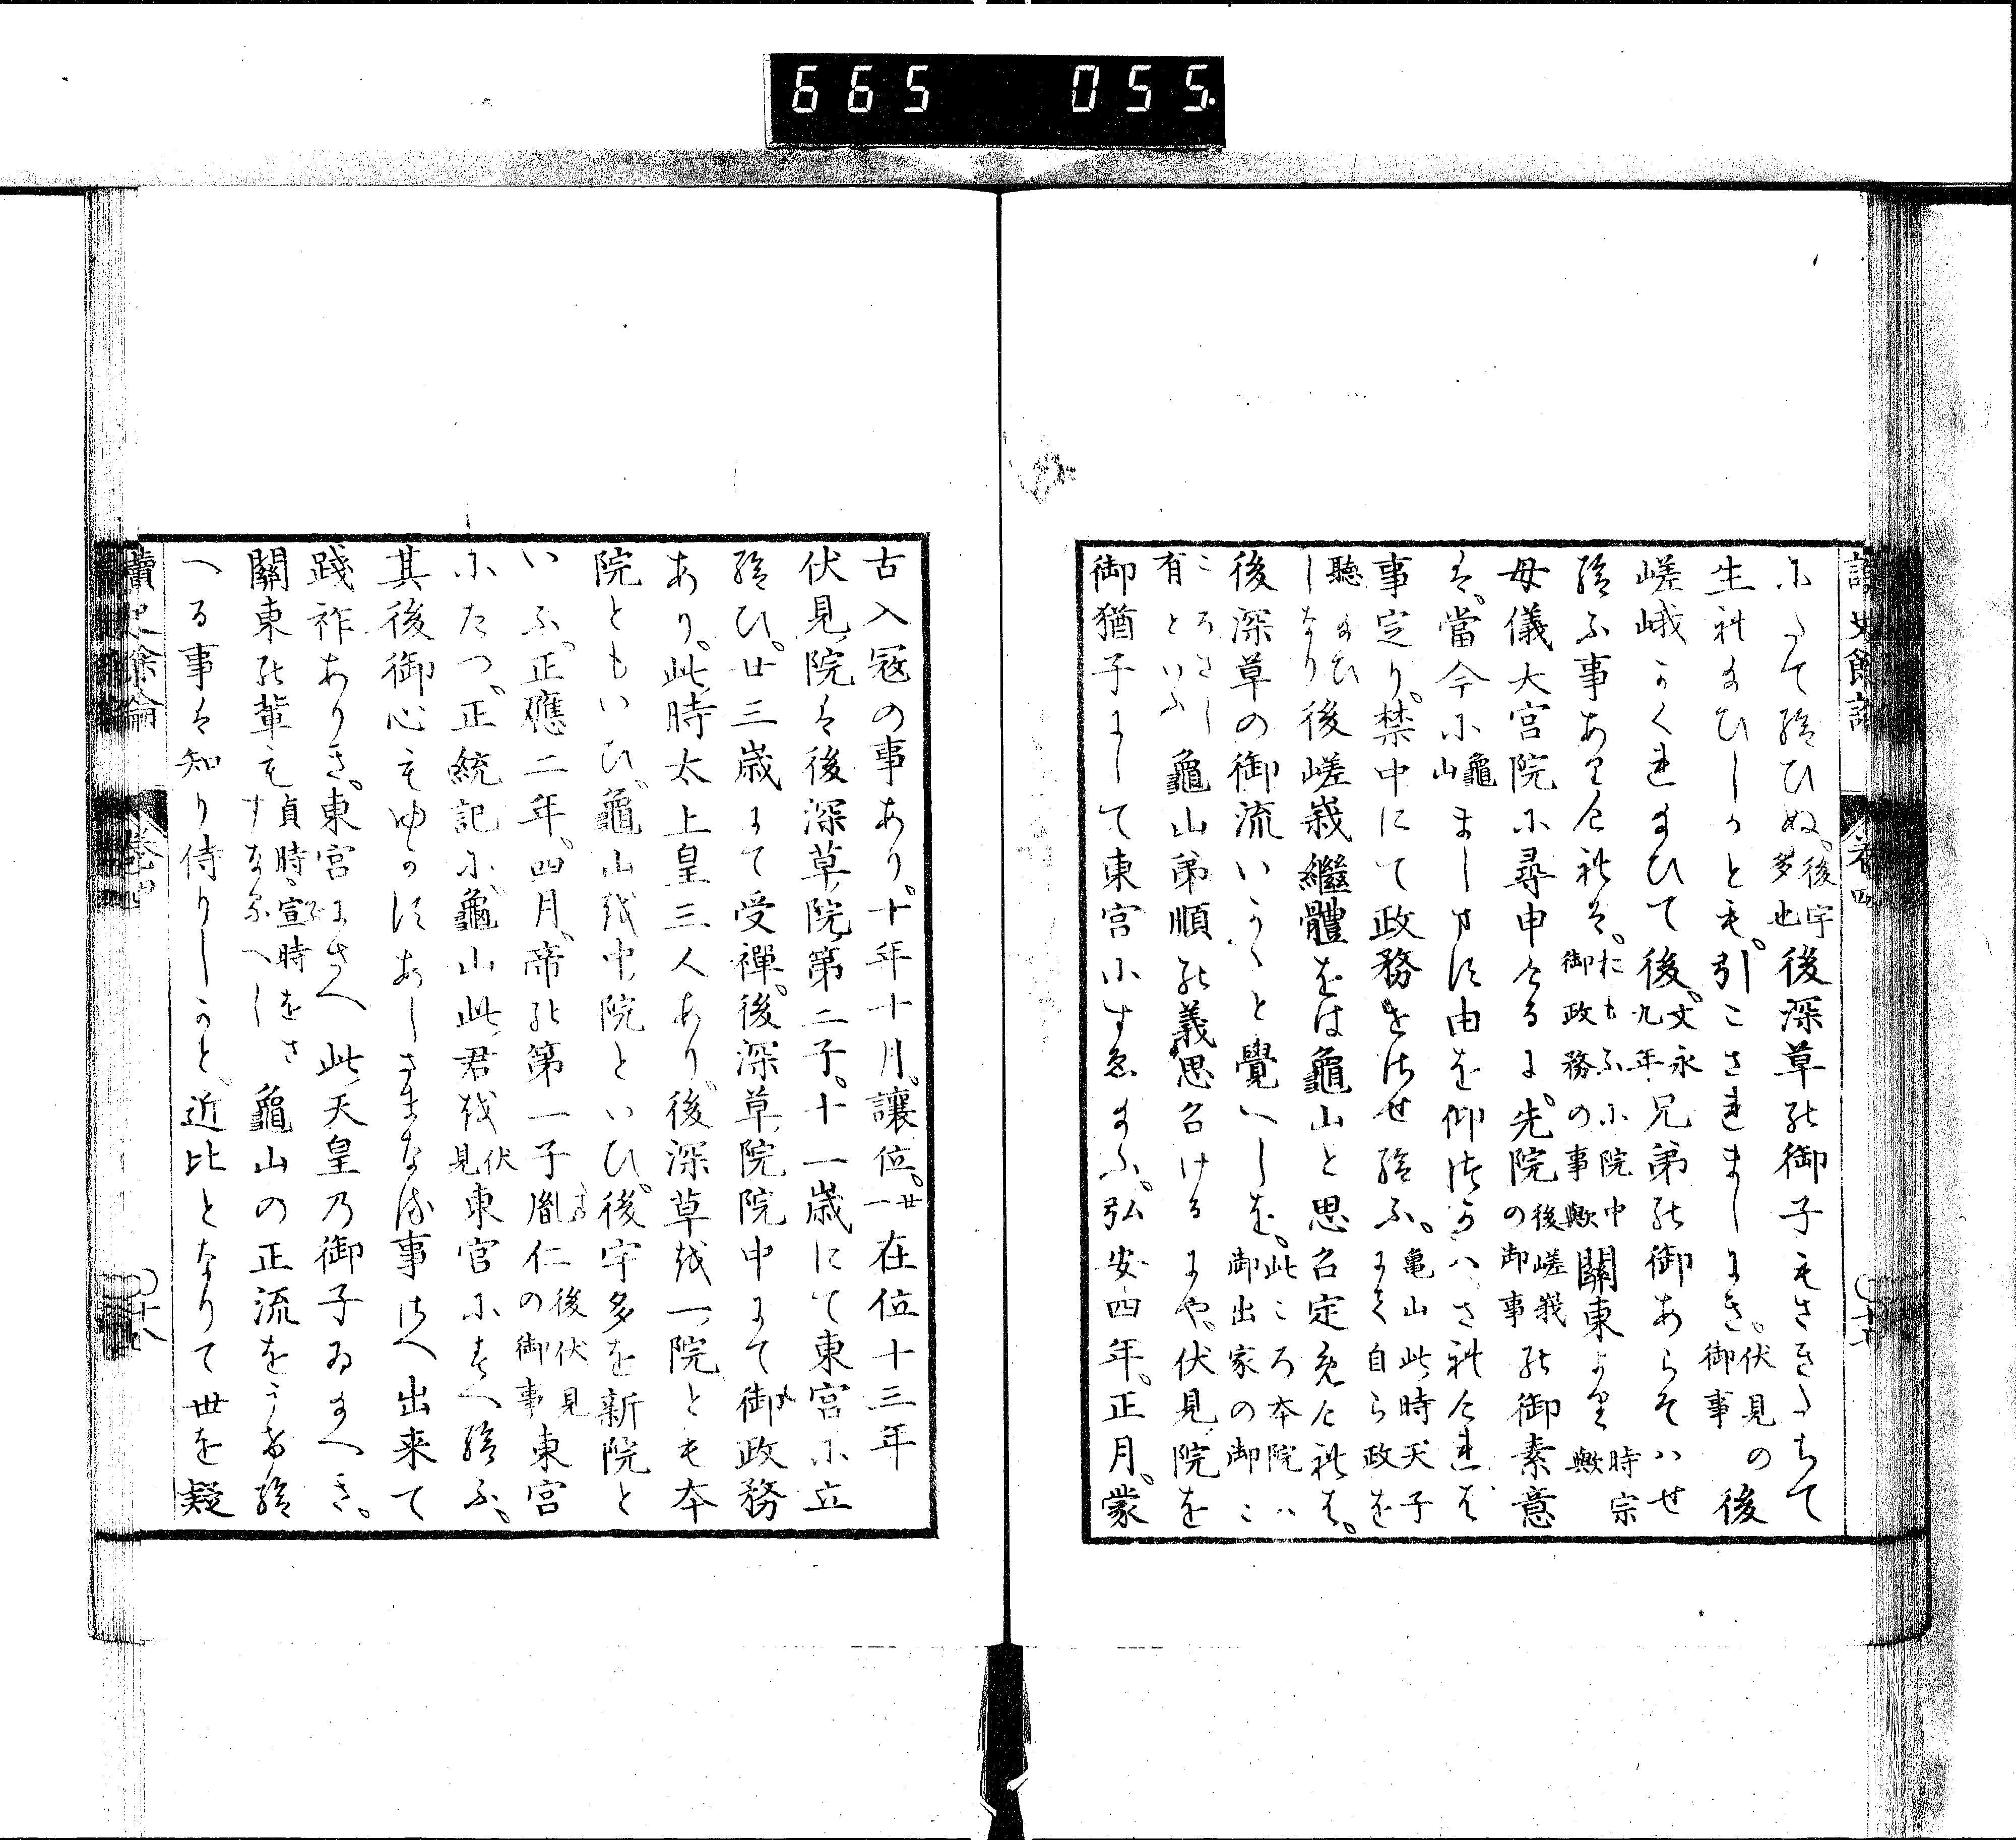 665 055.
讀史餘論 卷四 十六
にたて給ひぬ。後宇多也後深草の御子もさきたちて
生れ給ひしかとも。引こされましにき。伏見の御事後
嵯峨かくれ給ひて後。文永九年兄弟の御あらそはせ
給ふ事ありけれは。おもふに院中御政務の事歟關東より時宗歟
母儀大宮院に尋申けるに。先院後嵯峩の御事の御素意
は。當今に龜山まします由を仰つかはされけれは
事定り。禁中にて政務せさせ給ふ。亀山此時天子にて自ら政を
聽給ひしなり後嵯峩繼體をは龜山と思召定めけれは。
後深草の御流いかゝと覺へしを。此ころ本院ハ御出家の御こ
ころさし有といふ龜山弟順の義思召けるにや。伏見院を
御猶子にして東宮にすゑ給ふ。弘安四年。正月。蒙
古入冦の事あり。十年十月。讓位。廿一在位十三年
伏見院は後深草院第二子。十一歳にて東宮に立
給ひ。廿三歳にて受禪。後深草院院中にて御政務
あり。此時太上皇三人あり。後深草を一院とも本
院ともいひ。龜山を中院といひ。後宇多を新院と
いふ。正應二年。四月。帝の第一子胤仁後伏見の御事東宮
にたつ。正統記に龜山此君を伏見東宮にすへ給ふ。
其後御心もゆかすあしさまなる事さへ出来て
踐祚ありき。東宮にさへ此天皇乃御子ゐ給へき。
關東の輩も貞時宣時をさすなるへし龜山の正流をうけ給
へる事は知り侍りしかと。近比となりて世を疑
讀史餘論 卷四 〇十六